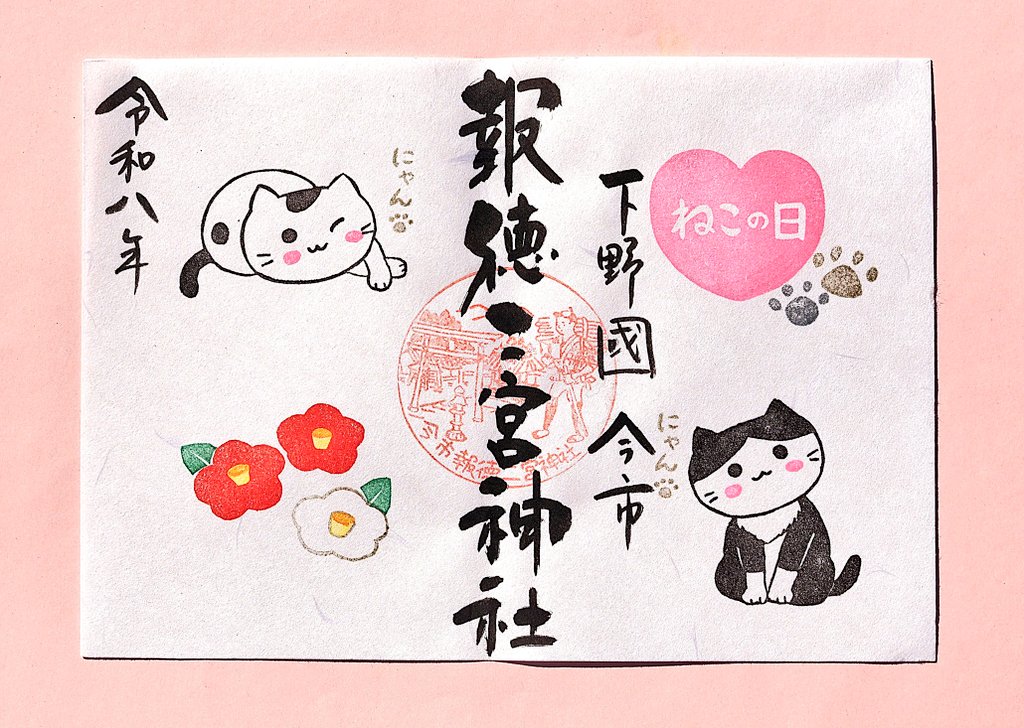 ねこの日
下野國 今市
にゃん
報徳二宮神社
今市 報徳二宮神社
にゃん
令和八年